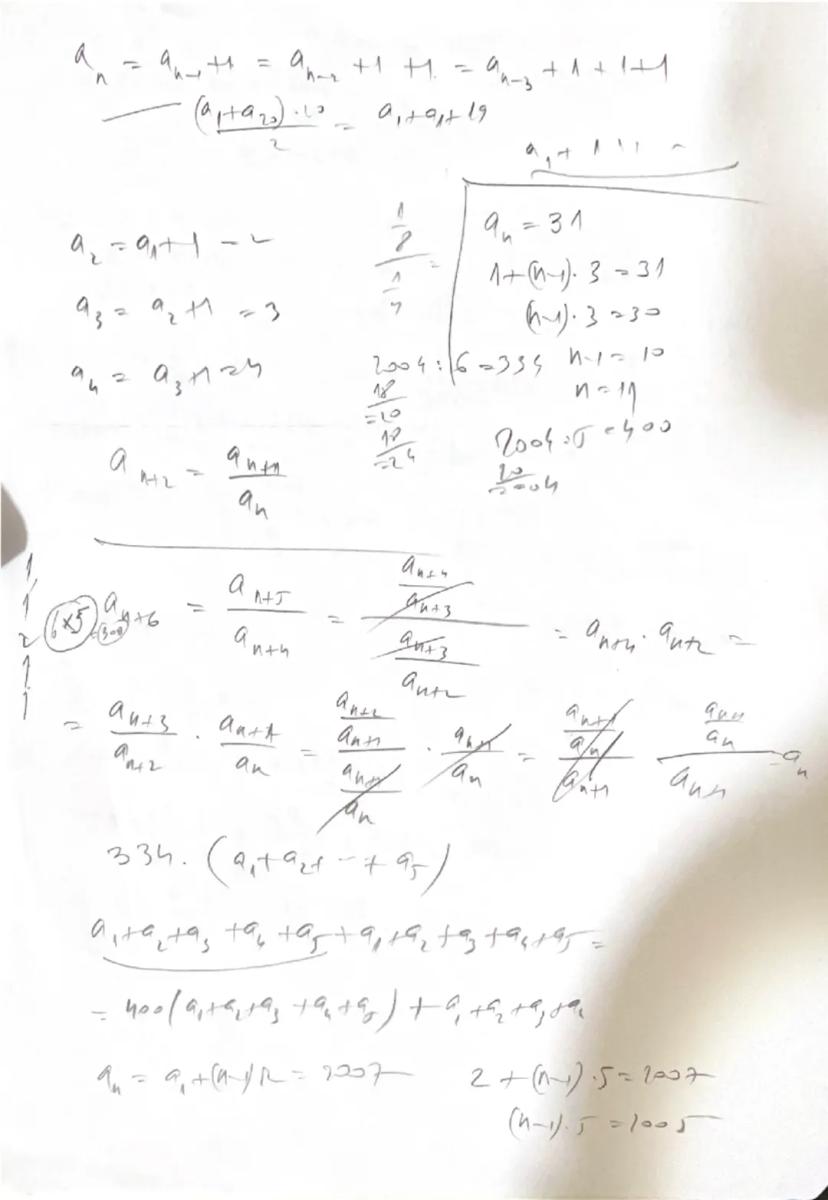 a_n = a_{n-1} + 1 = a_{n-2} + 1 + 1 = a_{n-3} + 1 + 1 + 1
(a_1 + a_{20}) · 20 / 2 = a_1 + a_1 + 19
a_1 + 1
a_2 = a_1 + 1 = 2
a_3 = a_2 + 1 = 3
a_4 = a_3 + 1 = 4
a_{n+2} = a_{n+1} / a_n
1/8
a_n = 31
1 + (n-1) · 3 = 31
(n-1) · 3 = 30
n-1 = 10
n = 11
2004 : 6 = 334
18
=20
18
=24
2004 : 5 = 400
20
1
1
2
1
1
6×5
a_{n+6} = a_{n+5} / a_{n+4} = (a_{n+4} / a_{n+3}) / (a_{n+3} / a_{n+2}) = a_{n+4} · a_{n+2} =
= a_{n+3} / a_{n+2} · a_{n+1} / a_n = (a_{n+2} / a_{n+1}) / (a_{n+1} / a_n) · a_{n+1} / a_n = (a_{n+1} / a_n) / a_{n+1} (a_{n+1} / a_n) / a_{n+1} = a_n
334 · (a_1 + a_2 + ... + a_5)
a_1 + a_2 + a_3 + a_4 + a_5 + a_1 + a_2 + a_3 + a_4 + a_5 =
= 400 (a_1 + a_2 + a_3 + a_4 + a_5) + a_1 + a_2 + a_3 + a_4
a_n = a_1 + (n-1) r = 2007
2 + (n-1) · 5 = 2007
(n-1) · 5 = 2005